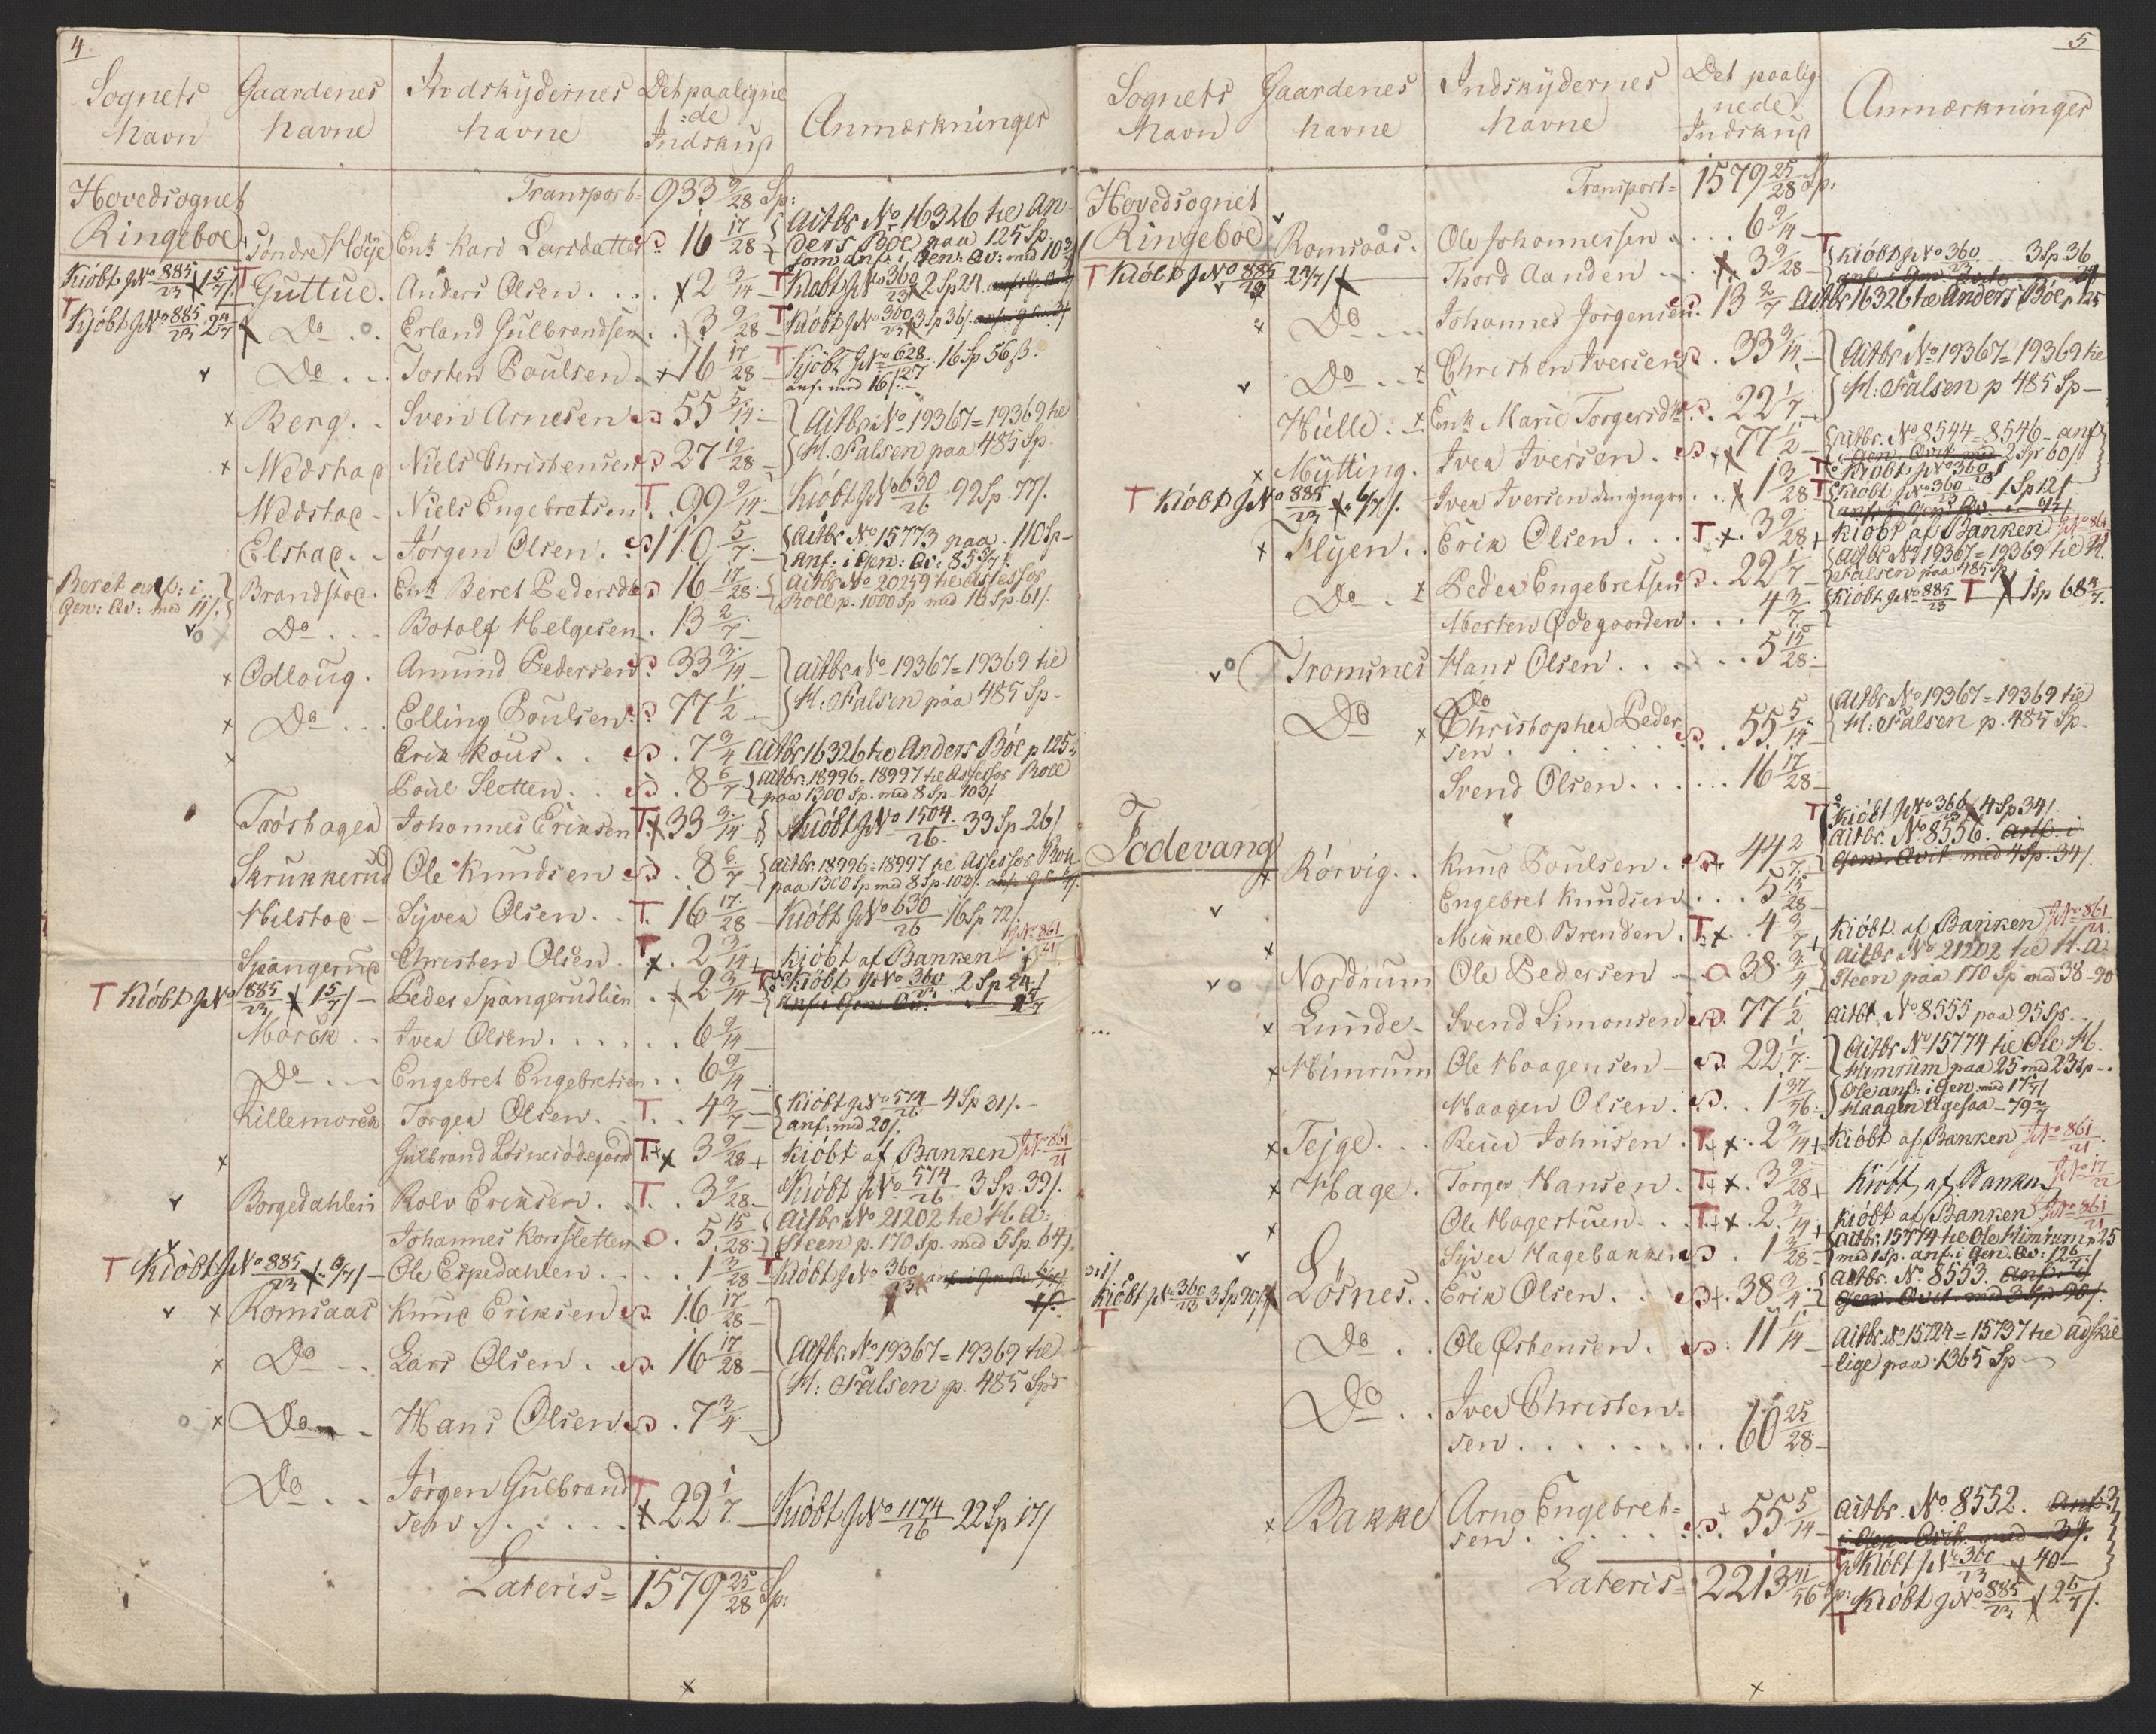 4.
Sognets Navn | Gaardenes Navne | Indskydernes Navne | Det paaligne:de Indskud | Anmærkninger
Hovedsognet Ringeboe
Transport= 933 9/28 Sp:
Søndre Høye | Enk. Kari Larsdatter | 16 17/28 | Aitbr No 16326 til Anders Boe paa 125 Sp. som anf: i Gen: Qv: med 103/
Kiöbt J No 885/23 1 5/7/ | Guttue. | Anders Olsen | 2 3/14 | Kiöbt J No 360/23 2 Sp 24
Kjöbt J No 885/23 2 4/7 | Do | Erland Gulbrandsen | 3 9/28 | Kiöbt J No 360/23 3 Sp 36/.
Do | Torsten Poulsen | 16 17/28 | Kjöbt J No 628/27 16 Sp 56 ß. anf. med 16/.
Berg. | Sven Arnesen | 55 5/14 | Aitbr No 19367=19369 til
Wedstad | Niels Christensen | 27 19/28 | H. Falsen paa 485 Sp.
Wedstad | Niels Engebretsen | T. 99 9/14 | Kiöbt J No 630/26 99 Sp. 77/.
Elstad | Jørgen Olsen | 110 5/7 | Aitbr No 15773 paa 110 Sp anf: i Gen: Qv: 85 5/7/.
Beret anf: i Gen: Qv: med 11/. | Brandstad. | Enk. Beret Pedersdr | 16 17/28 | Aitbr No 20259 til Assessor Roll p. 1000 Sp med 16 Sp. 61/.
Do | Botolf Helgesen | 13 2/7
Odloug. | Amund Pedersen | 33 3/14 | aitbr No 19367=19369 til
Do | Elling Poulsen | 77 1/2 | H: Falsen paa 485 Sp
Erik Kous | 7 3/4 | Aitbr 16326 til Anders Böe p 125
Poul Sletten | 8 6/7 | aitbr. 18996=18997 til Assessor Roll paa 1300 Sp. med 8 Sp. 103/
Tróshagen | Johannes Eriksen | T. 33 3/14 | Kiöbt J No 1504/26 33 Sp. 26/
Skrukkerud | Ole Knudsen | 8 6/7 | aitbr. 18996=18997 til Assessor Roll paa 1300 Sp med 8 Sp. 102/.
Hilstad | Syver Olsen | T. 16 17/28 | Kiöbt J No 630/26 16 Sp 72/.
Spangerud | Christen Olsen | T. 2 3/14 | Kiöbt af Banken J No 861/21
T Kiöbt J No 885/23 1 5/7/ | Peder Spangerudlien | 2 3/14 | Kiöbt J No 360/23 2 Sp 24/
MoreK | Iver Olsen | 6 9/14
Do | Engebret Engebretsen | 6 9/14
Killemoren | Torger Olsen | T. 4 3/7 | Kiöbt J No 574/26 4 Sp 31/. anf: med 20/.
Gulbrand Losnesødegaard | T. 3 9/28 | Kiöbt af Banken J No 861/21
Borgedahlen | Rolv Eriksen | T. 3 9/28 | Kiöbt J No 574/26 3 Sp. 39/.
Johannes Korsfletten | 5 15/28 | Aitbr No 21202 til H. A: Steen p. 170 Sp. med 5 Sp. 64/
T Kiöbt J No 885/23 6/7/ | Ole Espedahlen | 1 3/28 | Kiöbt J No 360/23
Romsaas | Knud Eriksen | 16 17/28
Do | Lars Olsen | 16 17/28 | Aitbr. No 19367=19369 til
Do | Hans Olsen | 7 3/4 | H: Falsen p. 485 Spd
Do | Jørgen Gulbrandsen | T 22 1/7 | Kiöbt J No 1174/26 22 Sp 17/
Lateris= 1579 25/28 Sp:
5
Sognets Navn | Gaardenes Navne | Indskydernes Navne | Det paalignede Indskud | Anmærkninger
Hovedsognet Ringeboe
Transport= 1579 25/28 Sp:
Romsaas. | Ole Johannessen | 6 9/14
T Kiöbt J No 885/23 2 4/7/ | Thord Aanden | 3 9/28 | Kiöbt J No 360/23 3 Sp 36
Do | Johannes Jørgensen | 13 2/7 | Aitbr 16326 til Anders Böe p 125
Do | Christen Iversen | 33 3/14 | Aitbr No 19367=19369 til
Hielle. | Enk. Marie Torgersdr | 22 1/7 | H: Falsen p 485 Sp
Mytting. | Iver Iversen | 77 1/2 | aitbr. No 8544=8546 anf 2 Sp 60/. Kiöbt J No 360/23
T Kiöbt J No 885/23 6/7/. | Iver Iversen den yngre | 1 3/28 | Kiöbt J No 360/23 1 Sp 12/
Flyen | Erik Olsen | T. 3 9/28 | Kiöbt af Banken J No 861
Do | Peder Engebretsen | 22 1/7 | aitbr No 19367=19369 til H. Falsen paa 485 Sp
Morten Ødegaarden | 4 3/7 | Kiöbt J No 885/23 T 1 Sp 68 4/7.
Tromsnes | Hans Olsen | 5 15/28
Do | Do Christopher Pedersen | 55 5/14 | Aitbr No 19367=19369 til H: Falsen p. 485 Sp.
Svend Olsen | 16 17/28
Fodevang
Rórvig. | Knud Poulsen | 44 2/7 | Kiöbt J No 360/23 4 Sp 34/. aitbr. No 8556. anf. i Gen. Qvit. med 4 Sp. 34/.
Engebret Knudsen | 5 15/28
Mikkel Brenden | T. 4 3/7 | Kiöbt af Banken J No 861/21
Nordrum | Ole Pedersen | 38 3/4 | aitbr No 21202 til H. A: Steen paa 170 Sp med 38-90
Lunde | Svend Simonsen | 77 1/2 | aitbr. No 8555 paa 95 Sp.
Himrum | Ole Haagensen | 22 1/7 | Aitbr No 15774 til Ole H. Himrum paa 25 med 23 Sp
Haagen Olsen | 1 37/56 | Ole anf: i Gen. med 17 1/7/ Haagen ligesaa 79 2/7
Tejge | Reier Johnsen | T. 2 3/14 | Kiöbt af Banken J No 861/21
Hage. | Torger Hansen | T. 3 9/28 | Kiöbt af Banken J No 17/22
Ole Hagestuen | T. 2 3/14 | Kiöbt af Banken J No 861/21
Syver Hagebakken | 1 3/28 | aitbr. 15774 til Ole Himrum p 25 med 1 Sp. anf. i Gen. Qv: 12 6/7/
Kiöbt J No 360/23 3 Sp 90/ T | Lósnes | Erik Olsen | 38 3/4 | aitbr. No 8553. anf. i Gen. Qvit. med 3 Sp 90/.
Do | Ole Østensen | 11 1/14 | Aitbr No 15724=15737 til adskillige paa 1365 Sp
Do | Iver Christensen | 60 25/28
Bakke | Arne Engebretsen | 55 5/14 | aitbr. No 8552. anf: i Gen. Qvit. med 34. T Kiöbt J No 360/23 40
Lateris= 2213 41/56 Sp: T Kiöbt J No 885/23 2 6/7/.